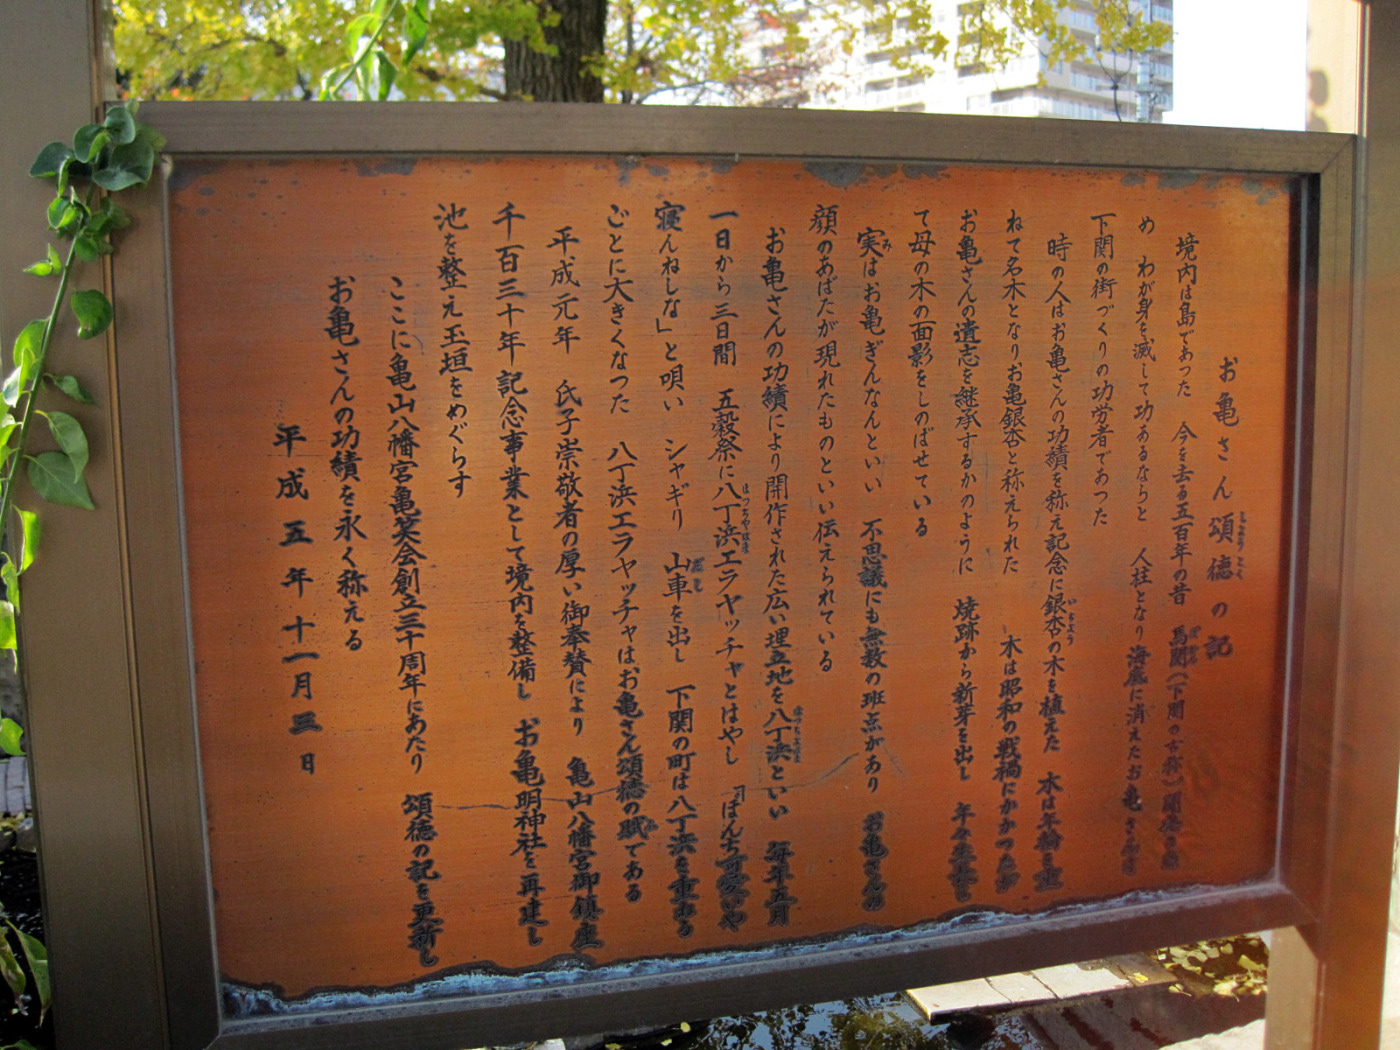 お亀さん頌徳の記
境内は島であった 今を去る五百年の昔 馬関(下関の古称)開
め わが身を滅して功あるならと 人柱となり海底に消えたお亀さん
下関の街づくりの功労者であつた
時の人はお亀さんの功績を称え記念に銀杏の木を植えた 木は年輪を重
ねて名木となりお亀銀杏と称えられた 木は昭和の戦禍にかかつたが
お亀さんの遺志を継承するかのように 焼跡から新芽を出し 年々
て母の木の面影をしのばせている
実はお亀ぎんなんといい 不思議にも無数の斑点があり お亀さんの
顔のあばたが現れたものといい伝えられている
お亀さんの功績により開作された広い埋立地を八丁浜といい 毎年五月
一日から三日間 五穀祭に八丁浜エラヤッチャとはやし 「ぼんち可愛いや
寝んねしな」と唄い シャギリ 山車を出し 下関の町は八丁浜を重ねる
ごとに大きくなつた 八丁浜エラヤッチャはお亀さん頌徳の賦である
平成元年 氏子崇敬者の厚い御奉賛により 亀山八幡宮御鎮座
千百三十年記念事業として境内を整備し お亀明神社を再建し
池を整え玉垣をめぐらす
ここに亀山八幡宮亀笑会創立三十周年にあたり 頌徳の記を更新し
お亀さんの功績を永く称える
平成五年十一月三日